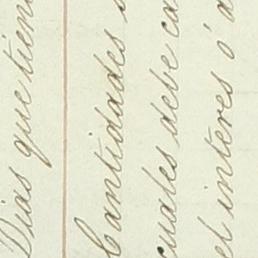 Dias que tien
Cantidades s
cuales debe ca
el interes ó a